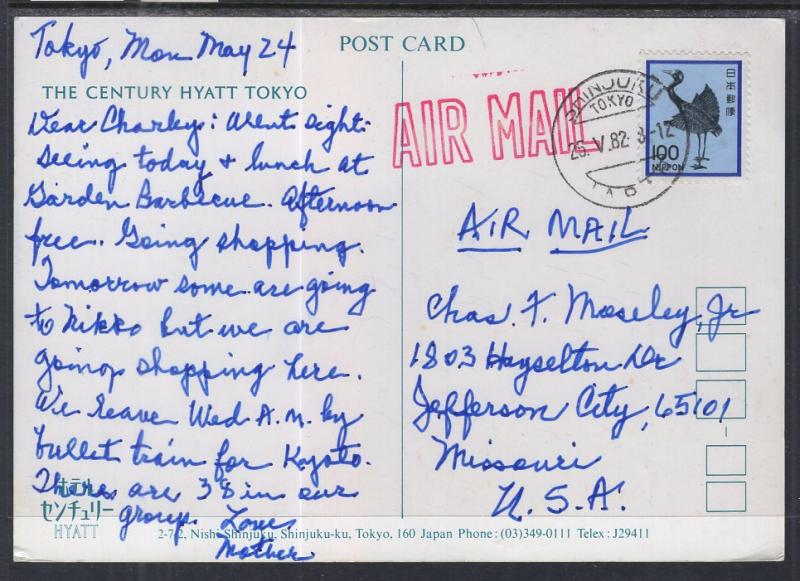 Tokyo, Mon May 24
POST CARD
THE CENTURY HYATT TOKYO
Dear Charley: Went sight-
seeing today + lunch at
Garden Barbecue. Afternoon
free. Going shopping.
Tomorrow some are going
to Nikko but we are
going shopping here.
We leave Wed A.M. by
bullet train for Kyoto.
There are 38 in our
group. Love
Mother
ホテル
センチュリー
HYATT
2-7-2, Nishi-Shinjuku, Shinjuku-ku, Tokyo, 160 Japan Phone: (03)349-0111 Telex: J29411
AIR MAIL
SHINJUKU
TOKYO
25. V. 82. 8-12
日本郵便
100
NIPPON
AIR MAIL
Chas. F. Moseley, Jr
1803 Hayselton Dr
Jefferson City, 65101
Missouri
U.S.A.